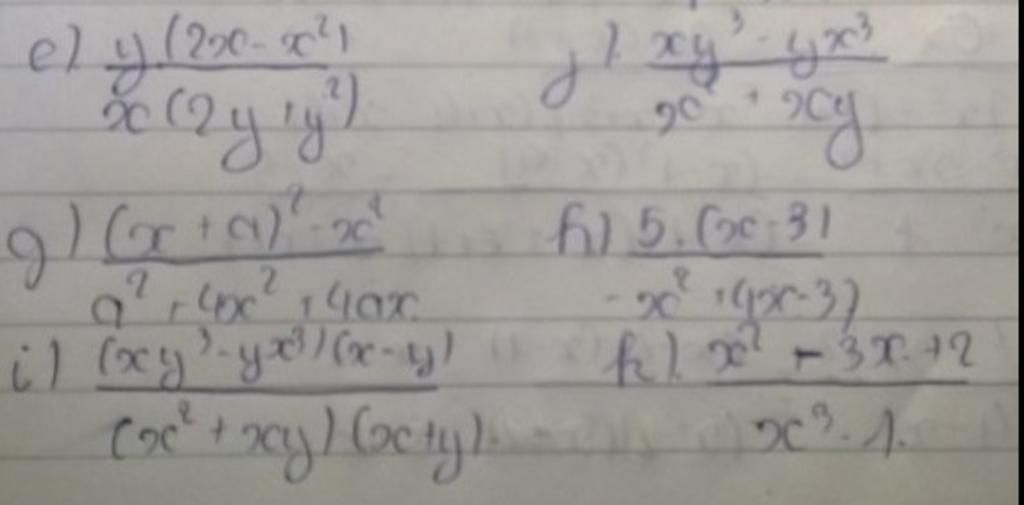 e) y(2x - x²) / x(2y + y²)    f) xy³ - yx³ / x² + xy
g) (x + a)² - x² / a² + 4x² + 4ax    h) 5.(x - 3) / -x² + 4x - 3)
i) (xy³ - yx³)(x - y) / (x² + xy)(x + y).    k) x² - 3x + 2 / x³ - 1.